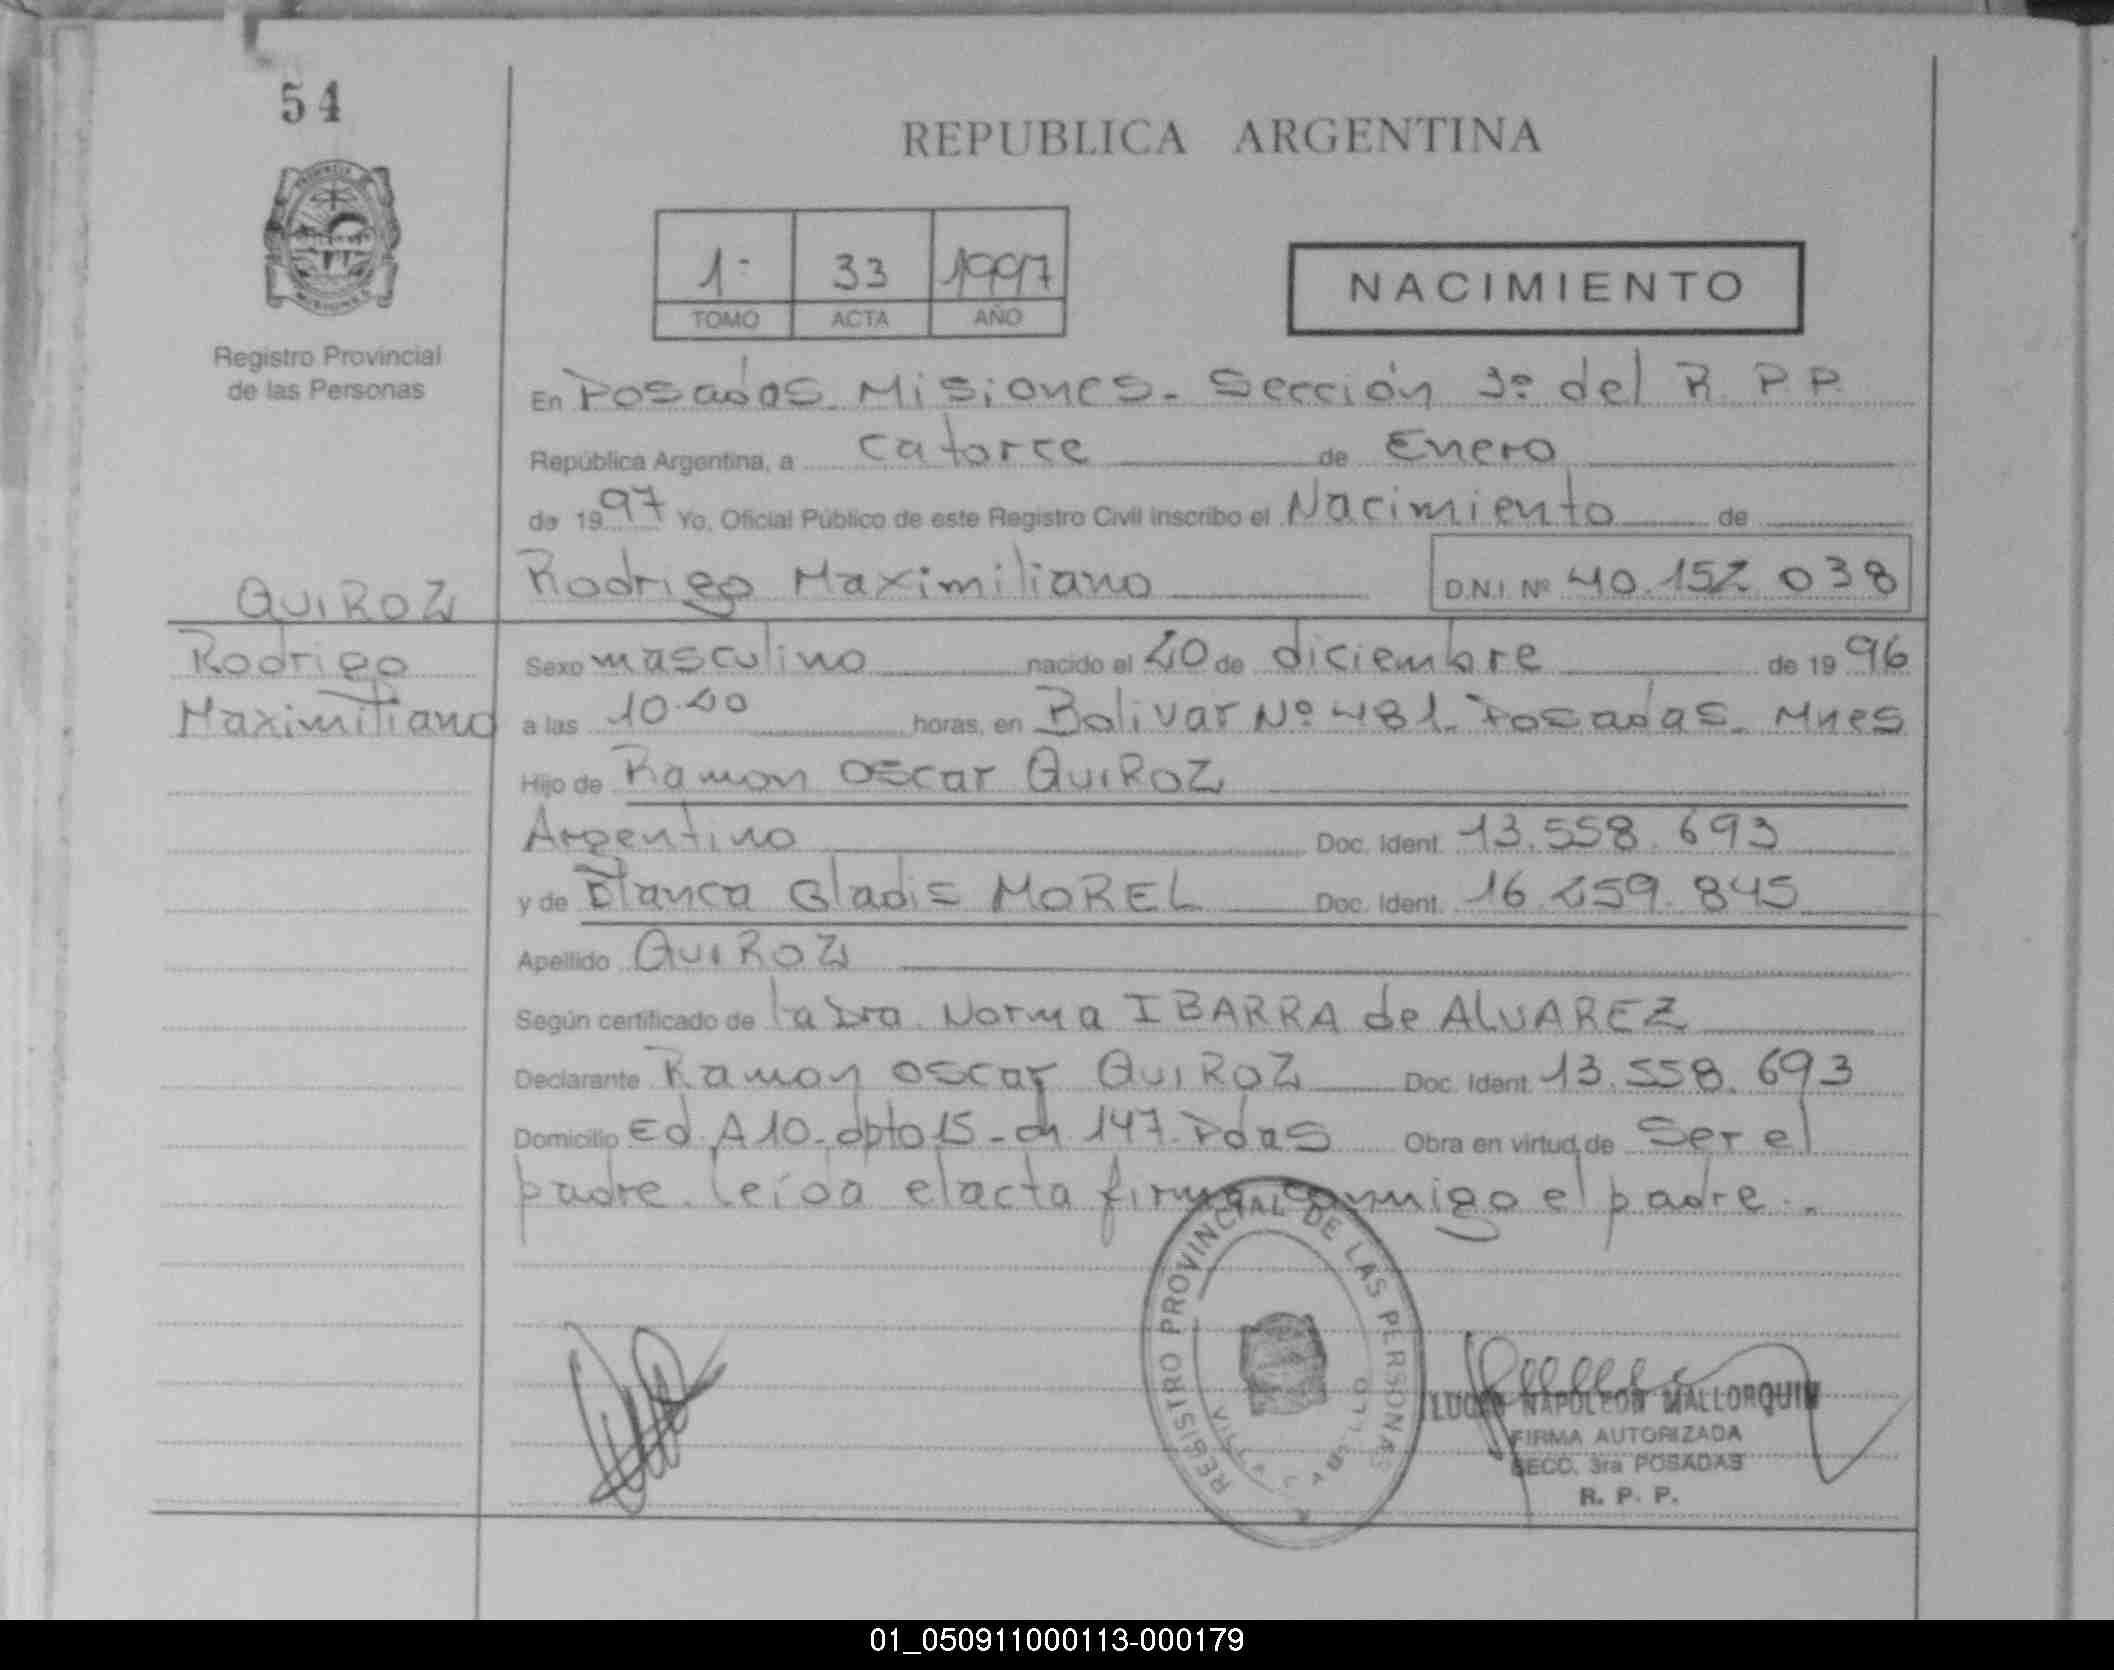 54
REPUBLICA ARGENTINA
1º 33 1997
TOMO ACTA AÑO
NACIMIENTO
Registro Provincial
de las Personas
En Posadas. Misiones. Sección 3º del R. P. P.
República Argentina, a catorce de Enero
de 1997 Yo, Oficial Público de este Registro Civil inscribo el Nacimiento de
Rodrigo Maximiliano D.N.I. Nº 40.152.038
QUIROZ
Rodrigo
Maximiliano
Sexo masculino nacido el 20 de diciembre de 1996
a las 10.20 horas, en Bolivar Nº 481. Posadas. Mnes
Hijo de Ramon Oscar QUIROZ
Argentino Doc. Ident. 13.558.693
y de Blanca Gladis MOREL Doc. Ident. 16.259.845
Apellido QUIROZ
Según certificado de la Dra. Norma IBARRA de ALVAREZ
Declarante Ramon Oscar QUIROZ Doc. Ident. 13.558.693
Domicilio Ed. A 10. dpto 15 - ch. 147. Pdas Obra en virtud de Ser el
padre. leída el acta firma conmigo el padre.-
REGISTRO PROVINCIAL DE LAS PERSONAS
VILLA CABELLO
NAPOLEON MALLORQUIN
FIRMA AUTORIZADA
SECC. 3ra POSADAS
R. P. P.
01_050911000113-000179